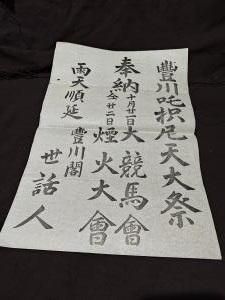 豐川吒枳尼天大祭
奉納
十月廿一日大競馬會
仝廿二日煙火大會
雨天順延
豊川閣
世話人